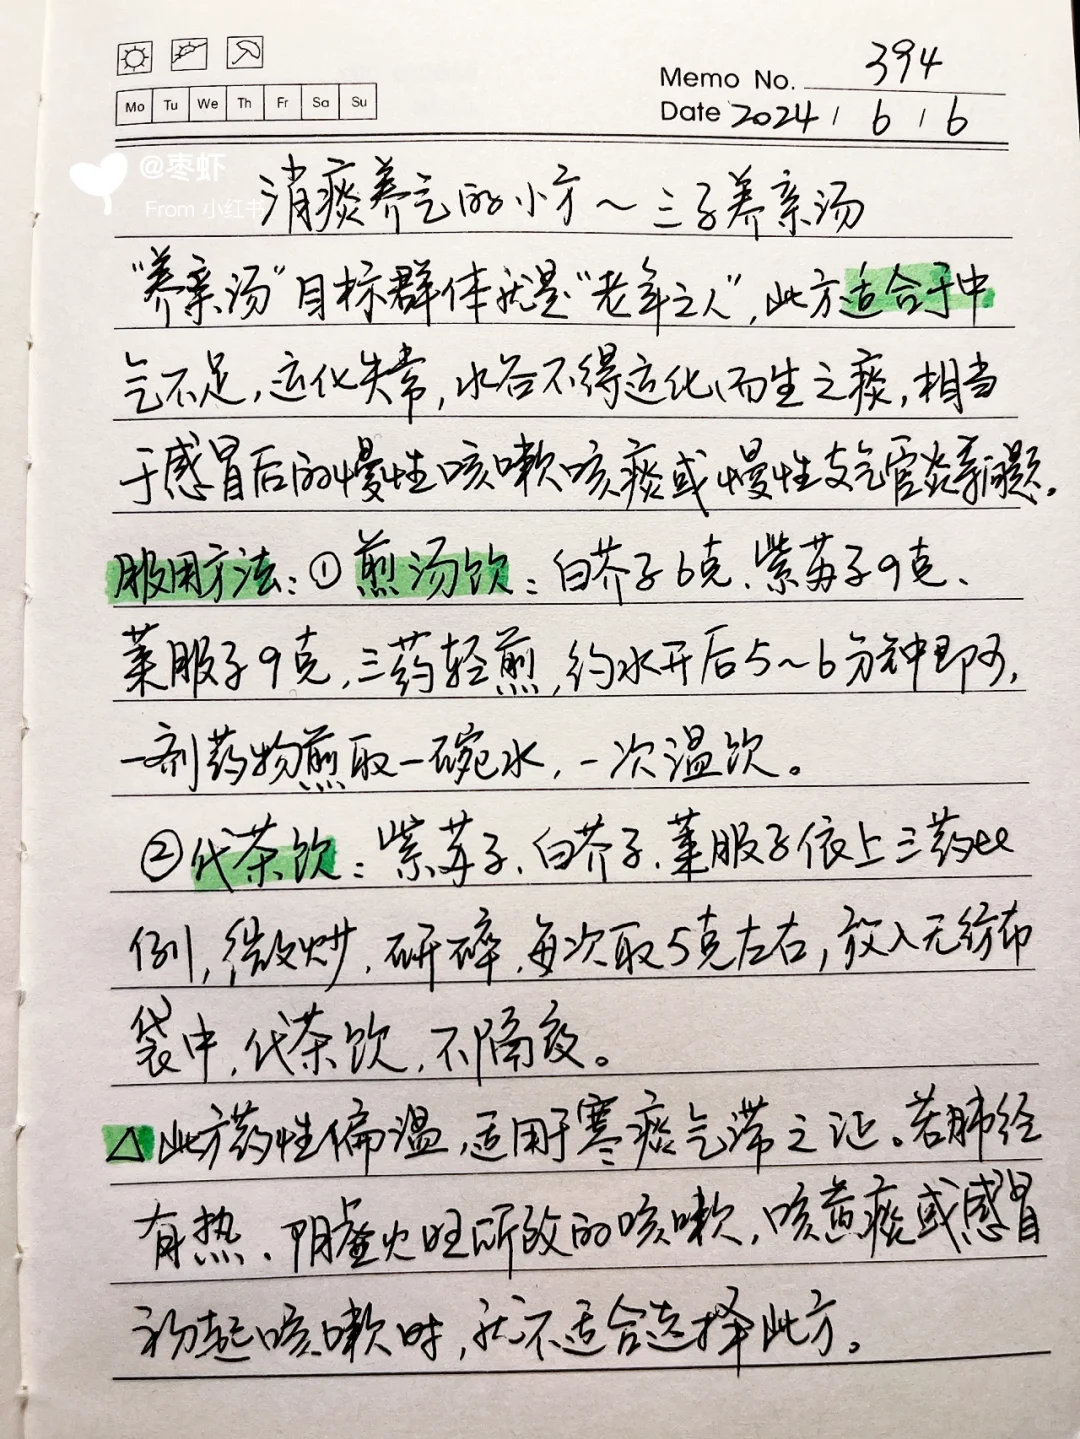 Memo No. 394
Mo Tu We Th Fr Sa Su
Date 2024 / 6 / 6
@枣虾
From 小红书
消痰养气的小方～三子养亲汤
“养亲汤”目标群体就是“老年之人”，此方适合于中
气不足，运化失常，水谷不得运化而生之痰，相当
于感冒后的慢性咳嗽咳痰或慢性支气管炎等问题。
服用方法：①煎汤饮：白芥子6克、紫苏子9克、
莱服子9克，三药轻煎，约水开后5～6分钟即可，
一剂药物煎取一碗水，一次温饮。
②代茶饮：紫苏子、白芥子、莱服子依上三药比
例，微炒，研碎，每次取5克左右，放入无纺布
袋中，代茶饮，不隔夜。
△此方药性偏温，适用于寒痰气滞之证。若肺经
有热、阴虚火旺所致的咳嗽，咳黄痰或感冒
初起咳嗽时，就不适合选择此方。